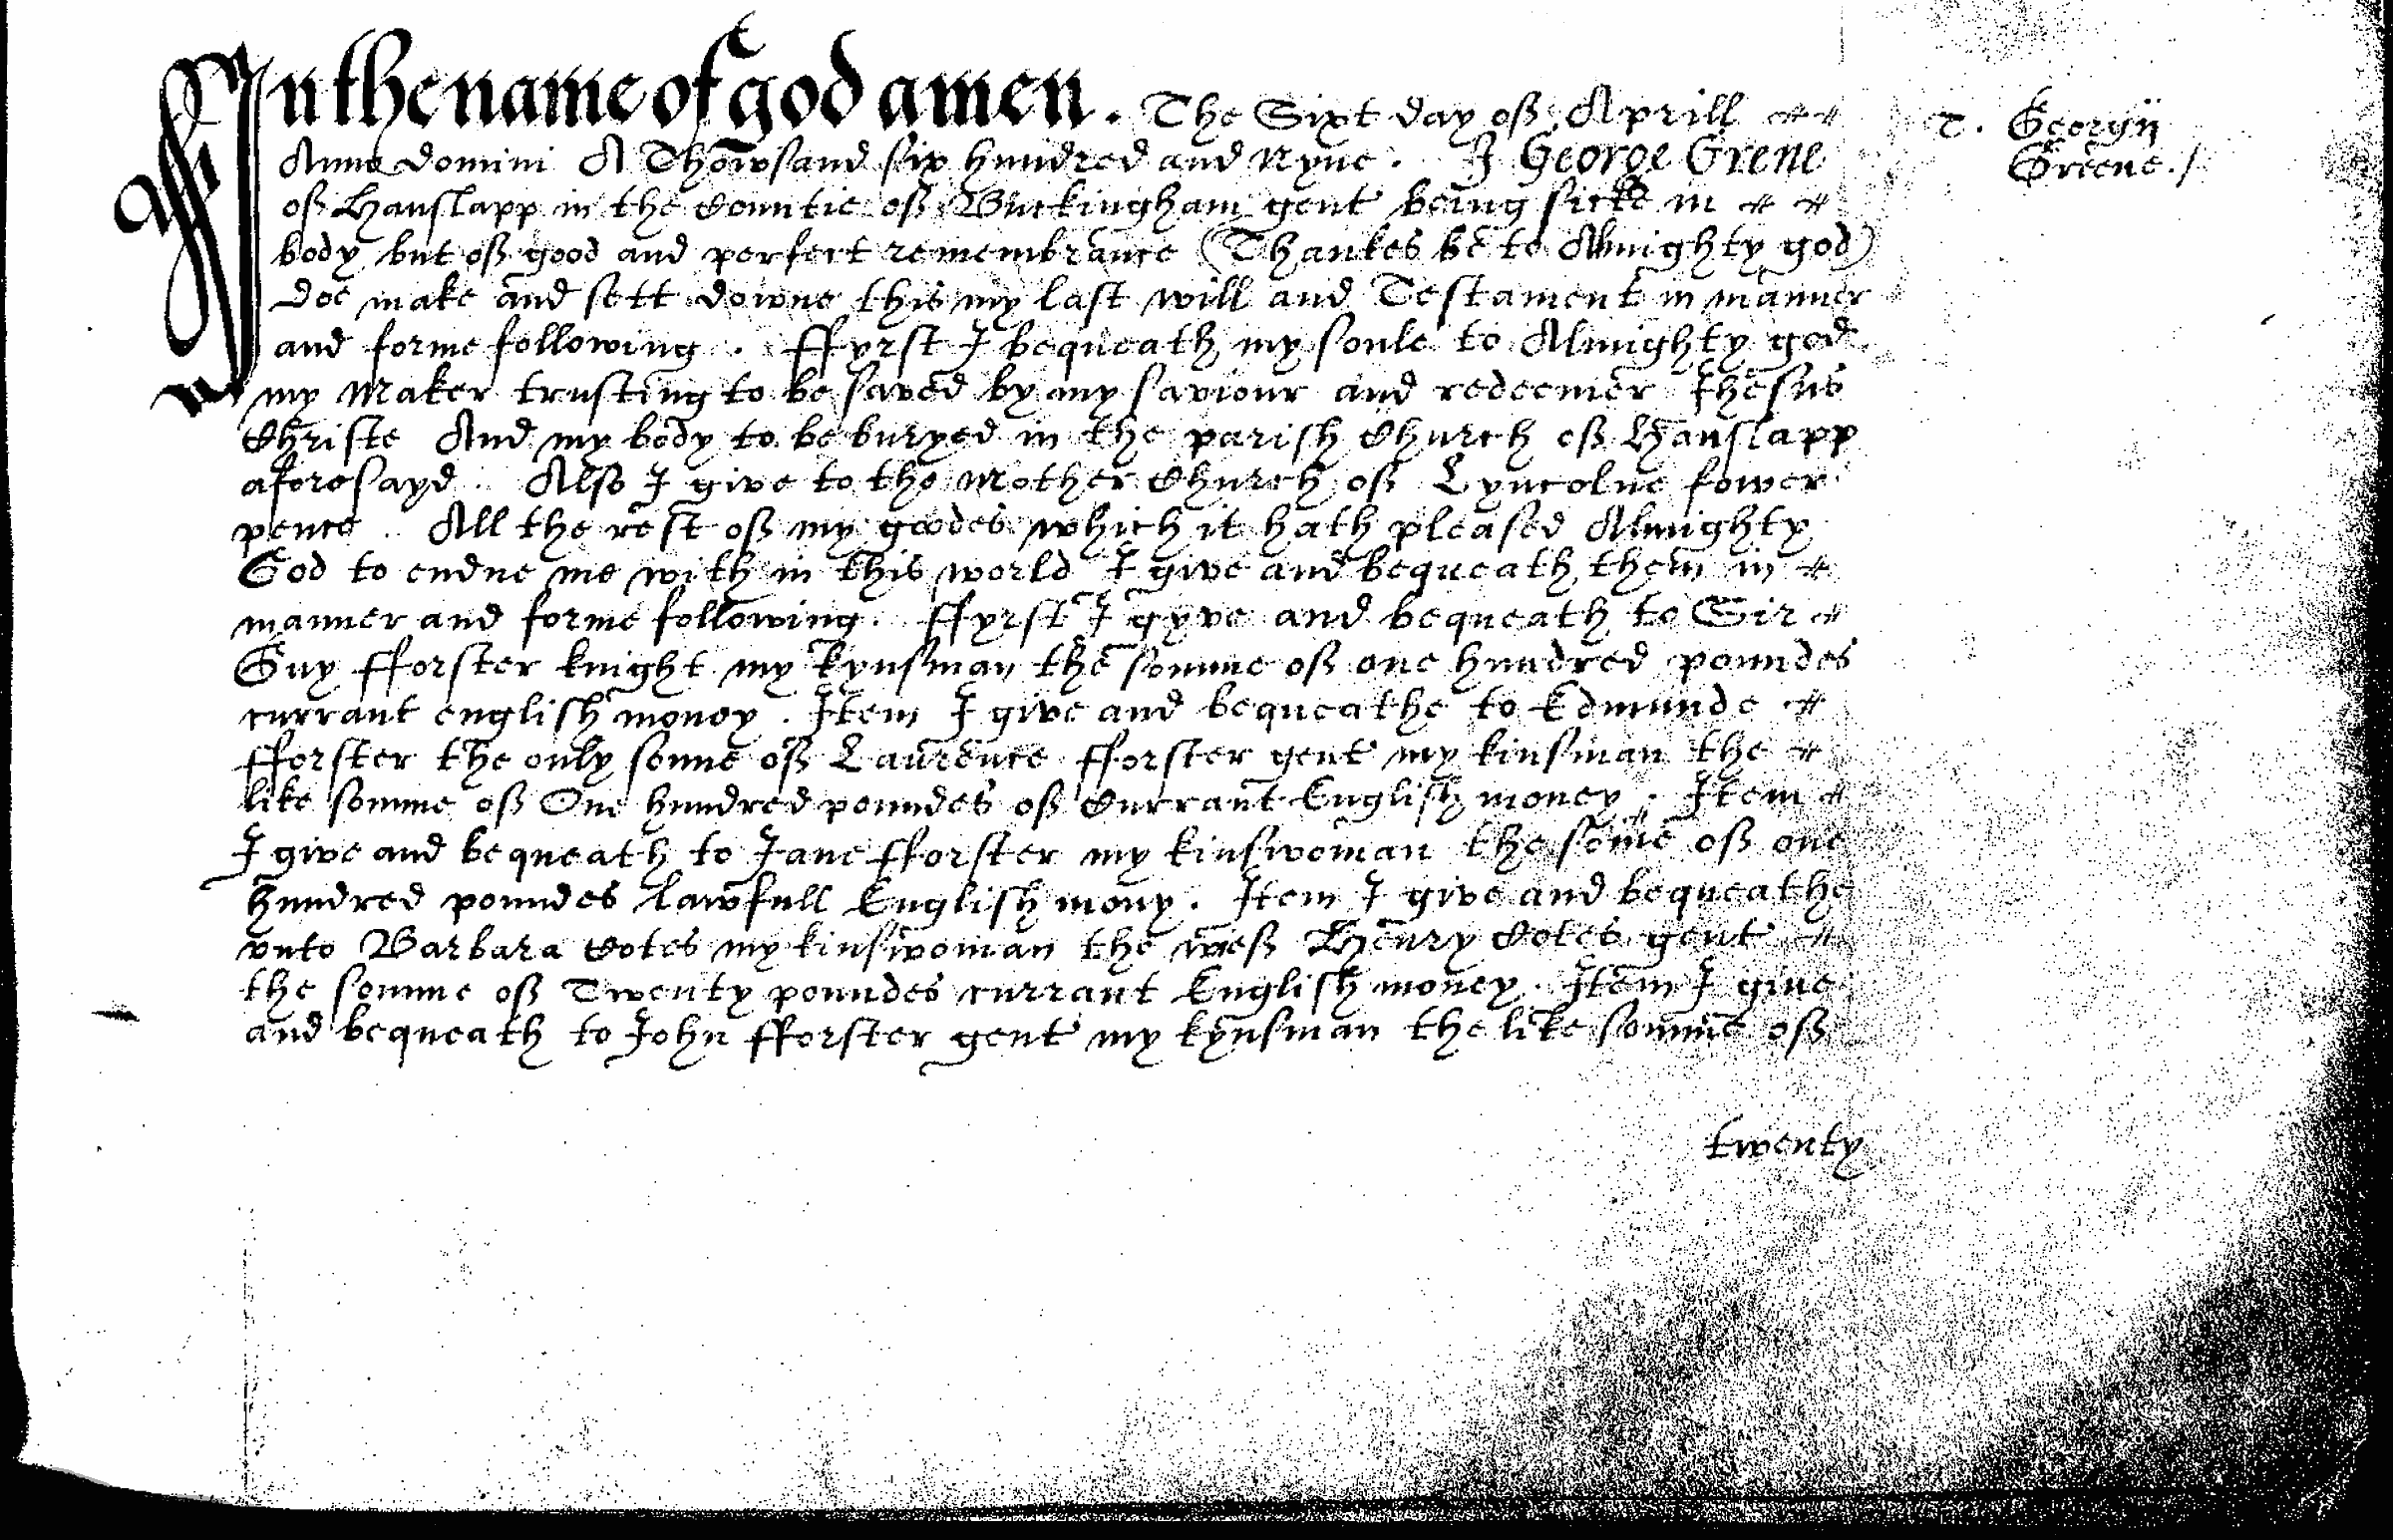 In the name of god amen. The Sixt day of Aprill
T. Georgij
Greene./
Anno domini A Thowsand six hundred and Nyne. I George Grene
of Hanslapp in the Countie of Buckingham gent being sicke in
body but of good and perfect remembrance (Thankes be to Almighty god)
doe make and sett downe this my last will and Testament in manner
and forme following. ffyrst I bequeath my soule to Almighty god
my Maker trusting to be saved by my saviour and redeemer Jhesus
Christe And my body to be buryed in the parish Church of Hanslapp
aforesayd. Also I give to the Mother Church of Lyncolne fower
pence. All the rest of my goodes which it hath pleased Almighty
God to endue me with in this world I give and bequeath them in
manner and forme following. ffyrst I gyve and bequeath to Sir
Guy fforster knight my kynsman the somme of one hundred poundes
currant english money. Item I give and bequeathe to Edmunde
fforster the only sonne of Laurence fforster gent my kinsman the
like somme of One hundred poundes of Currant English money. Item
I give and bequeath to Jane fforster my kinswoman the some of one
hundred poundes lawfull English mony. Item I give and bequeathe
vnto Barbara Cotes my kinswoman the weff Henry Cotes gent
the somme of Twenty poundes currant English money. Item I giue
and bequeath to John fforster gent my kynsman the like somme of
twenty